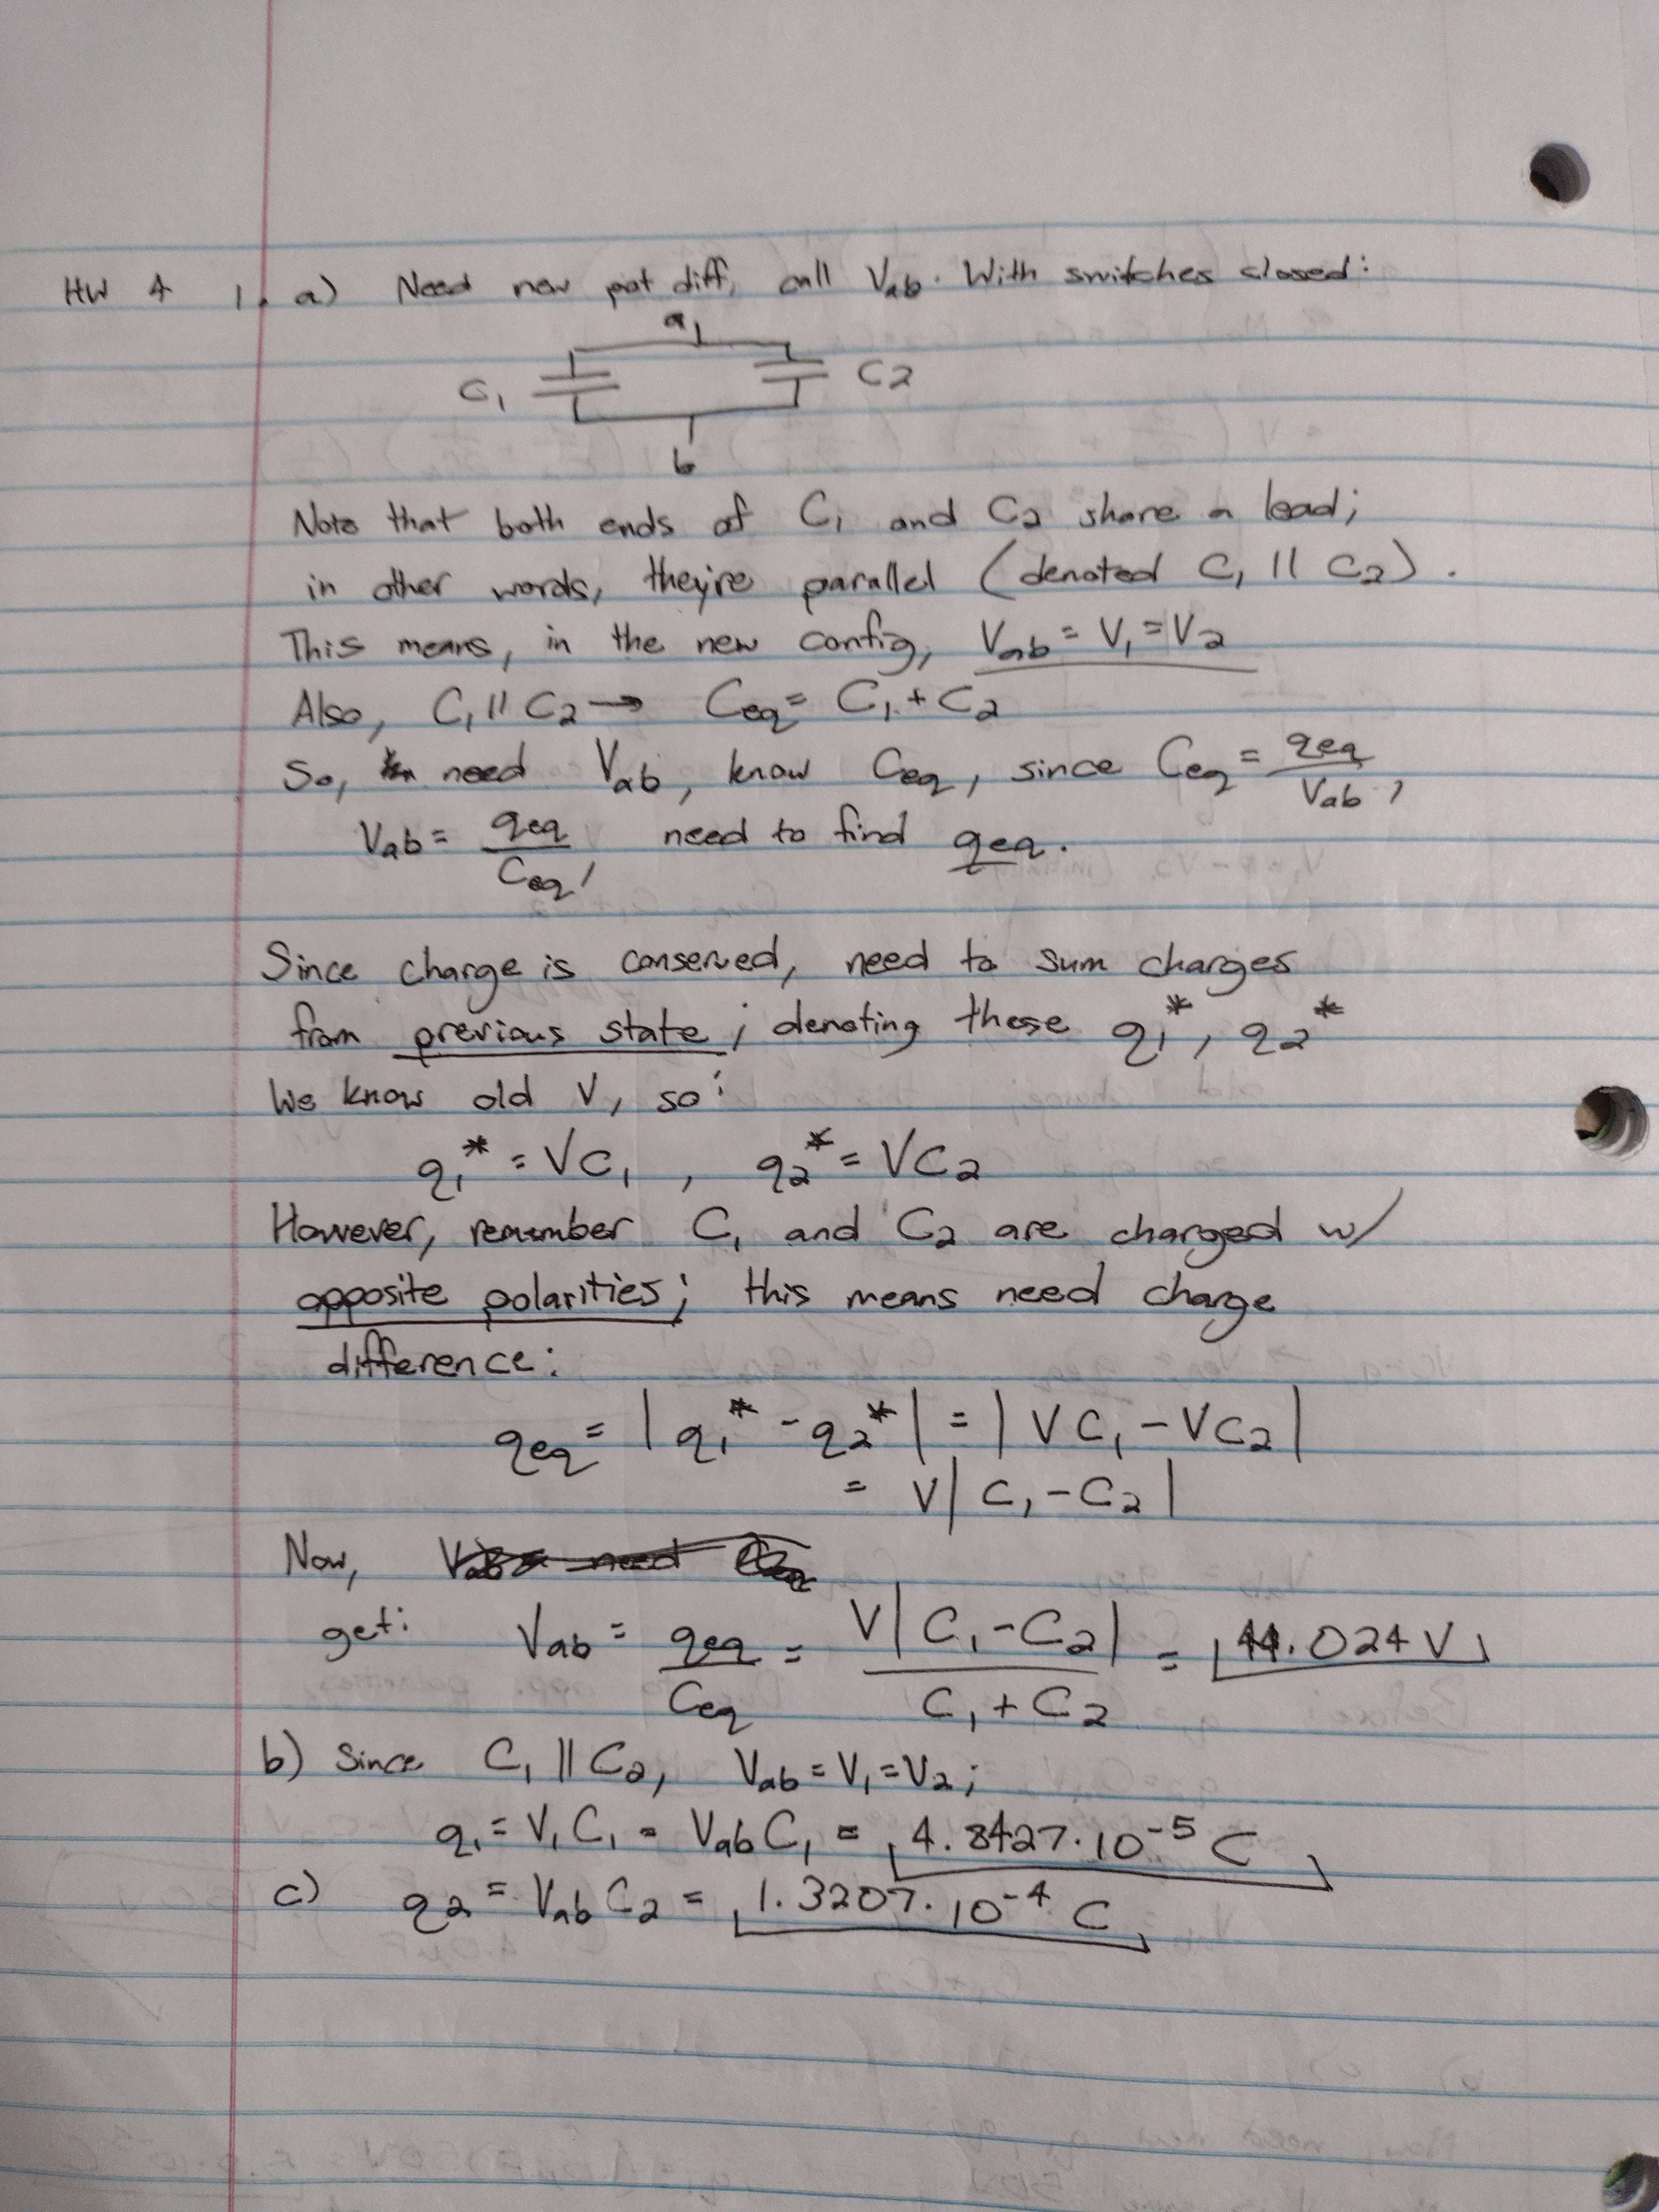 HW 4 1. a) Need new pot diff, call Vab. With switches closed:
a
C1 C2
b
Note that both ends of C1 and C2 share a lead;
in other words, they're parallel (denoted C1 || C2).
This means, in the new config, Vab = V1 = V2
Also, C1 || C2 → Ceq = C1 + C2
So, need Vab, know Ceq, since Ceq = qeq / Vab,
Vab = qeq / Ceq, need to find qeq.
Since charge is conserved, need to sum charges
from previous state; denoting these q1*, q2*
We know old V, so:
q1* = VC1, q2* = VC2
However, remember C1 and C2 are charged w/
opposite polarities; this means need charge
difference:
qeq = |q1* - q2*| = |VC1 - VC2|
= V|C1 - C2|
Now,
get: Vab = qeq / Ceq = V|C1 - C2| / C1 + C2 = 44.024 V
b) Since C1 || C2, Vab = V1 = V2;
q1 = V1C1 = VabC1 = 4.8427·10^-5 C
c) q2 = VabC2 = 1.3207·10^-4 C